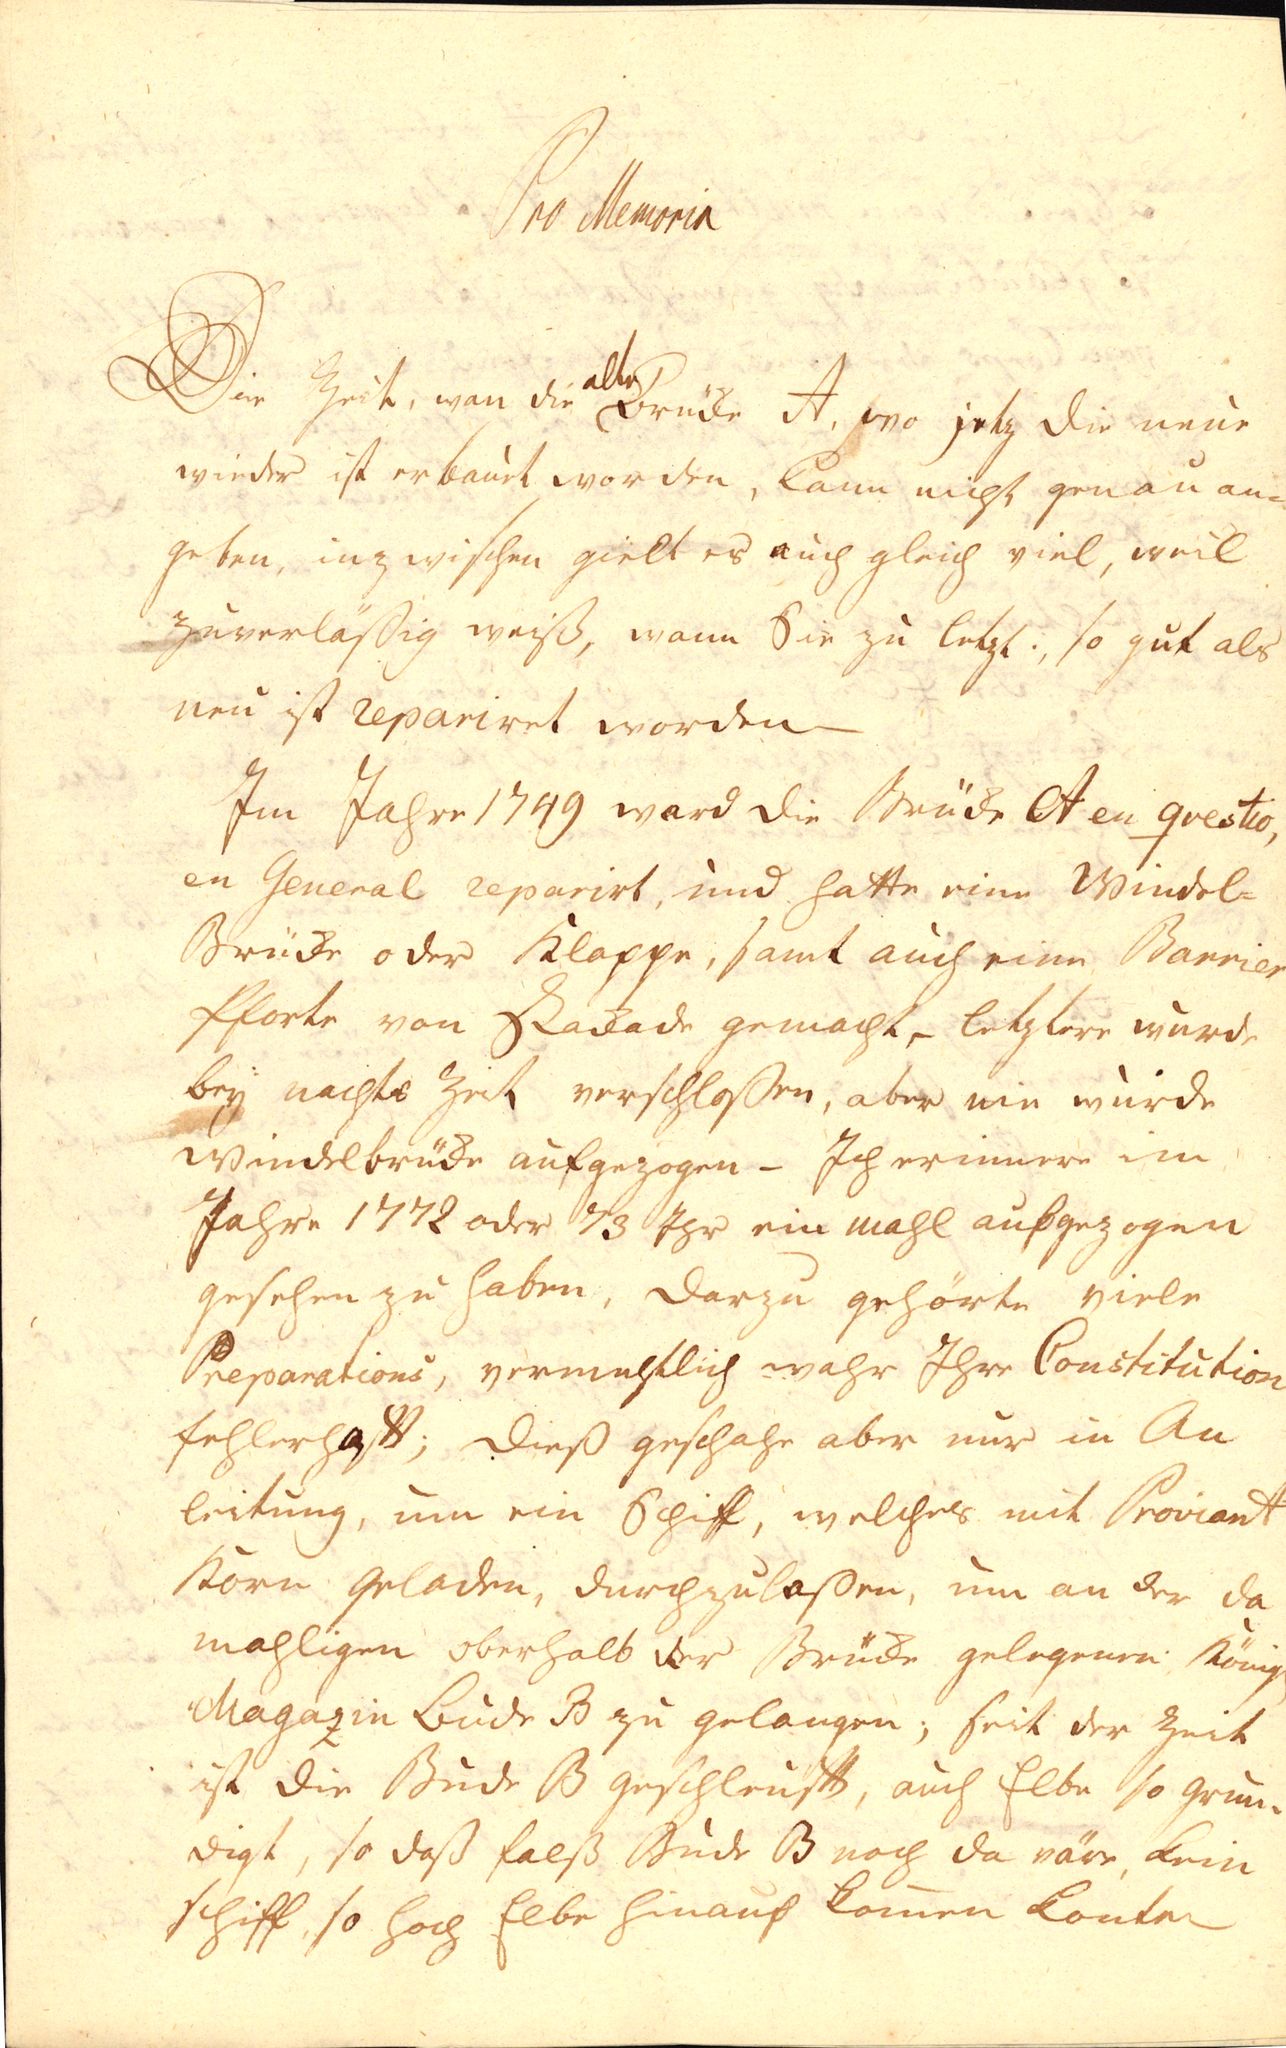 Pro Memoria
Die Zeit, wan die alte Brücke A, wo jetz die neue
wieder ist erbauet worden, kann nicht genau an=
geben, inzwischen gielt es auch gleich viel, weil
zuverläßig weiß, wann Sie zu letzt, so gut als
neu ist repariret worden
Im Jahre 1749 ward die Brücke A en questio,
en General reparirt, und hatte eine Windel=
Brücke oder Klappe, samt auch eine Barrier
Pforte von Stackade gemacht, letztere wurde
bey nachts Zeit verschloßen, aber nie wurde
Windelbrücke aufgezogen - Ich erinnere im
Jahre 1772 oder 73 Ihr ein mahl aufgezogen
gesehen zu haben, darzu gehörte viele
Preparations, vermuhtlich wahr Ihre Constitution
fehlerhafft; dieß geschahe aber nur in An
leitung, um ein Schiff, welches mit Proviant
Korn geladen, durchzulaßen, um an der da
mahligen oberhalb der Brücke gelegenen König
Magazin Bude B zu gelangen; seit der Zeit
ist die Bude B geschleufft, auch Elbe so grun=
digt, so daß falß Bude B noch da wäre, kein
schiff, so hoch Elbe hinauf kom̅en konte